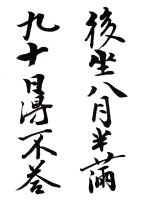 後坐八月半蒲
九十日薄不答